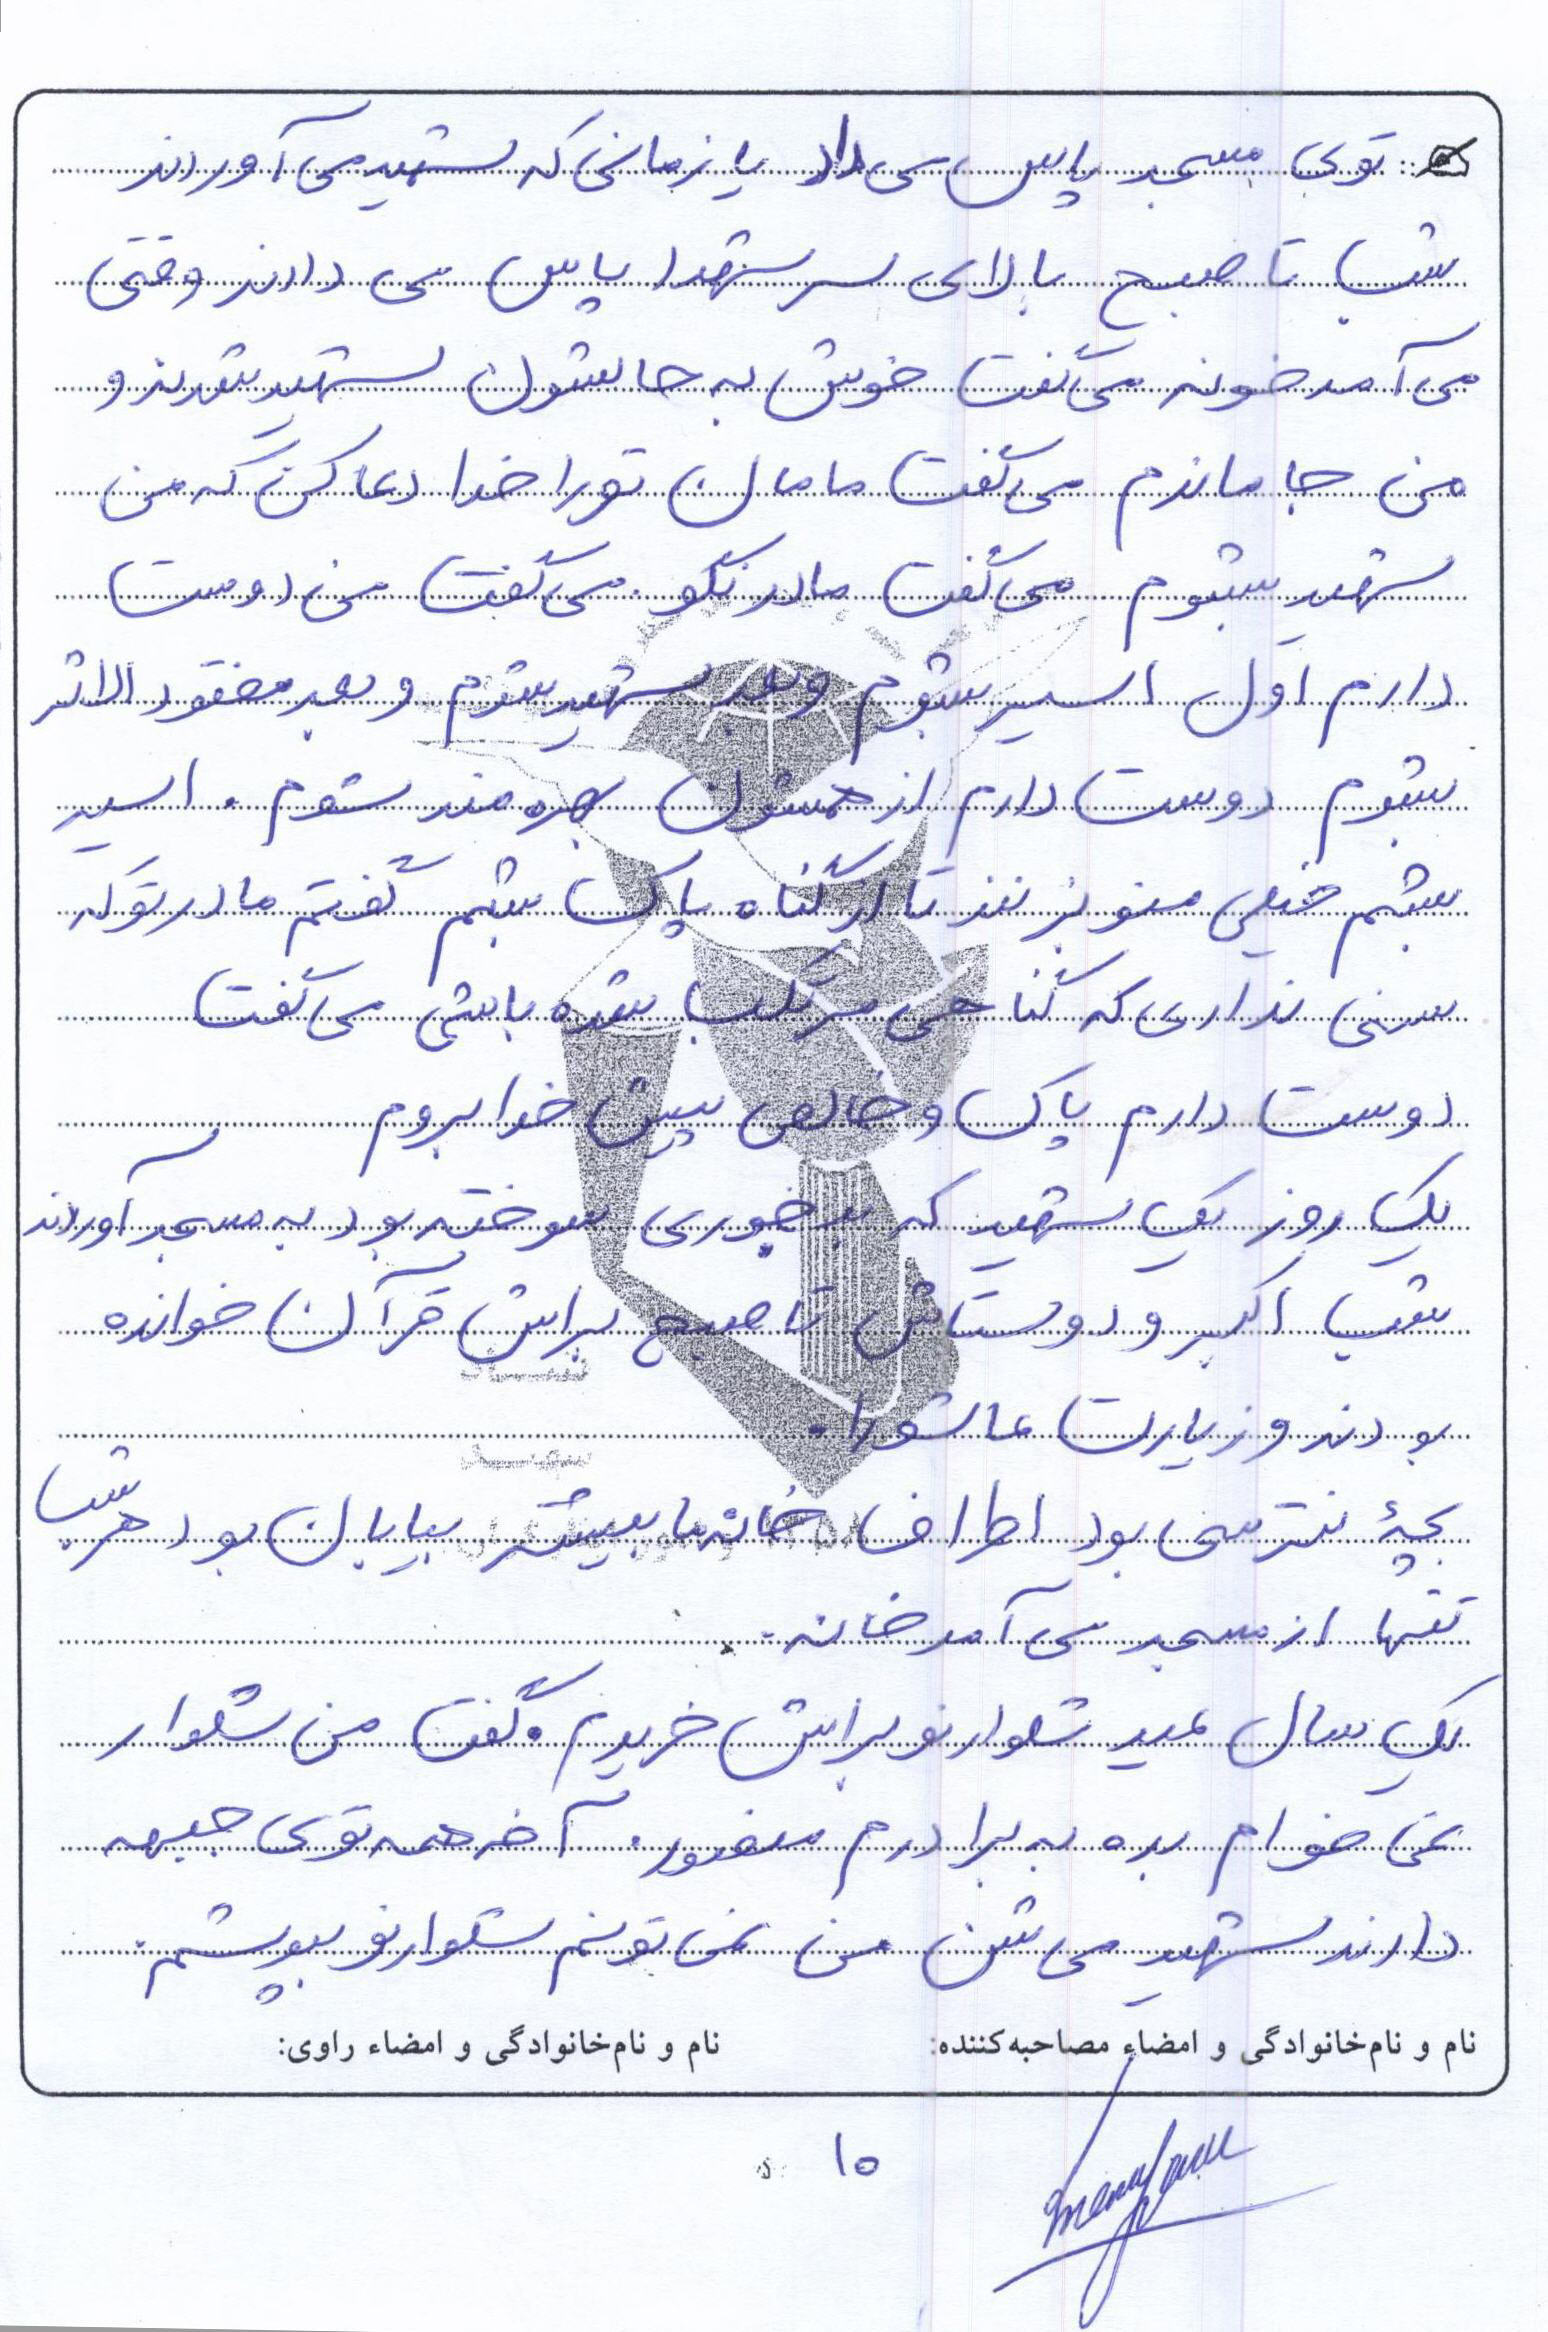 توی مسجد پاس می داد یا زمانی که شهید می آوردند
شب تا صبح بالای سر شهدا پاس می دادند وقتی
می آمد خونه می گفت خوش به حالشون شهید شدند و
من جا ماندم می گفت مامان تو را خدا دعا کن که من
شهید بشوم می گفت مادر نگو. می گفت من دوست
دارم اول اسیر بشوم و بعد شهید شوم و بعد مفقود الاثر
بشوم دوست دارم از همشون بهره مند شوم . اسیر
بشم خیلی منو بزنند تا از گناه پاک بشم گفتم مادر تو که
سنی نداری که گناهی مرتکب شده باشی می گفت
دوست دارم پاک و خالص پیش خدا بروم
یک روز یک شهید که بدجوری سوخته بود به مسجد آوردند
شب اکبر و دوستاش تا صبح براش قرآن خوانده
بودند و زیارت عاشورا.
بچهٔ نترسی بود اطراف خانه ما بیشتر بیابان بود هر شب
تنها از مسجد می آمد خانه.
یک سال عید شلوار نو براش خریدم . گفت من شلوار
نمی خوام بده به برادرم منصور. آخر همه توی جبهه
دارند شهید می شن من نمی تونم شلوار نو بپوشم.
نام و نام‌خانوادگی و امضاء مصاحبه‌کننده: نام و نام‌خانوادگی و امضاء راوی:
۱۵